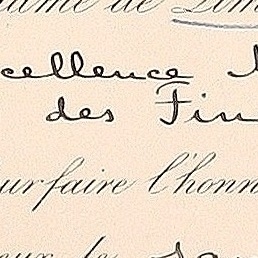 ame de Lim
cellence M
des Fin
ur faire l'honn
eux le sam